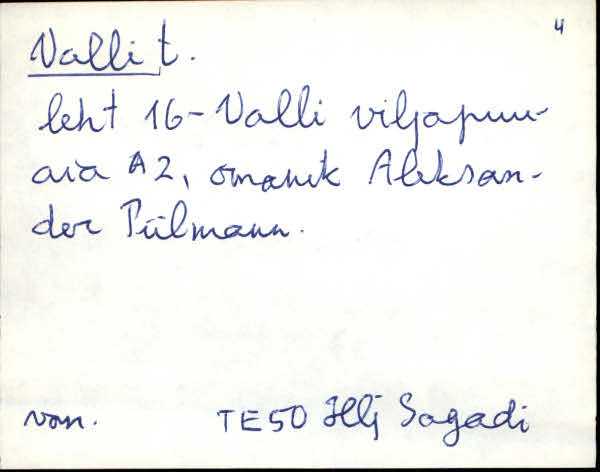 4
Valli t.
leht 16 - Valli viljapuu-
aia A2, omanik Aleksan-
der Piilmann.
van. TE50 Hlj Sagadi